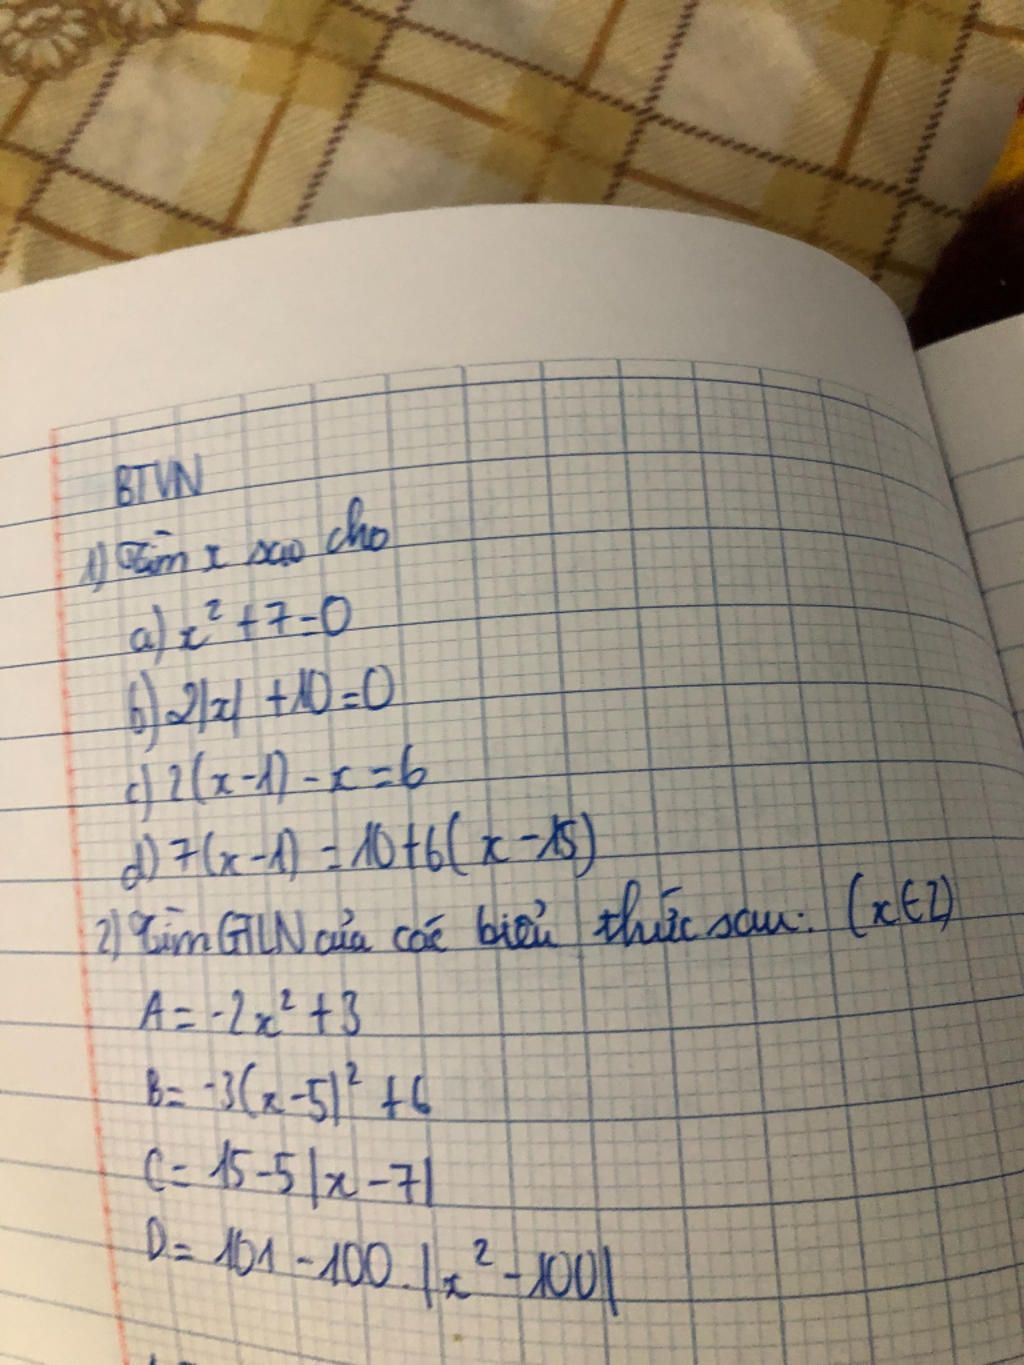 BTVN
1) Tìm x sao cho
a) x² + 7 = 0
b) 2|x| + 10 = 0
c) 2(x-1) - x = 6
d) 7(x-1) = 10+6(x-15)
2) Tìm GTLN của các biểu thức sau: (x∈Z)
A = -2x² + 3
B = -3(x-5)² + 6
C = 15-5|x-7|
D = 101-100.|x²-100|